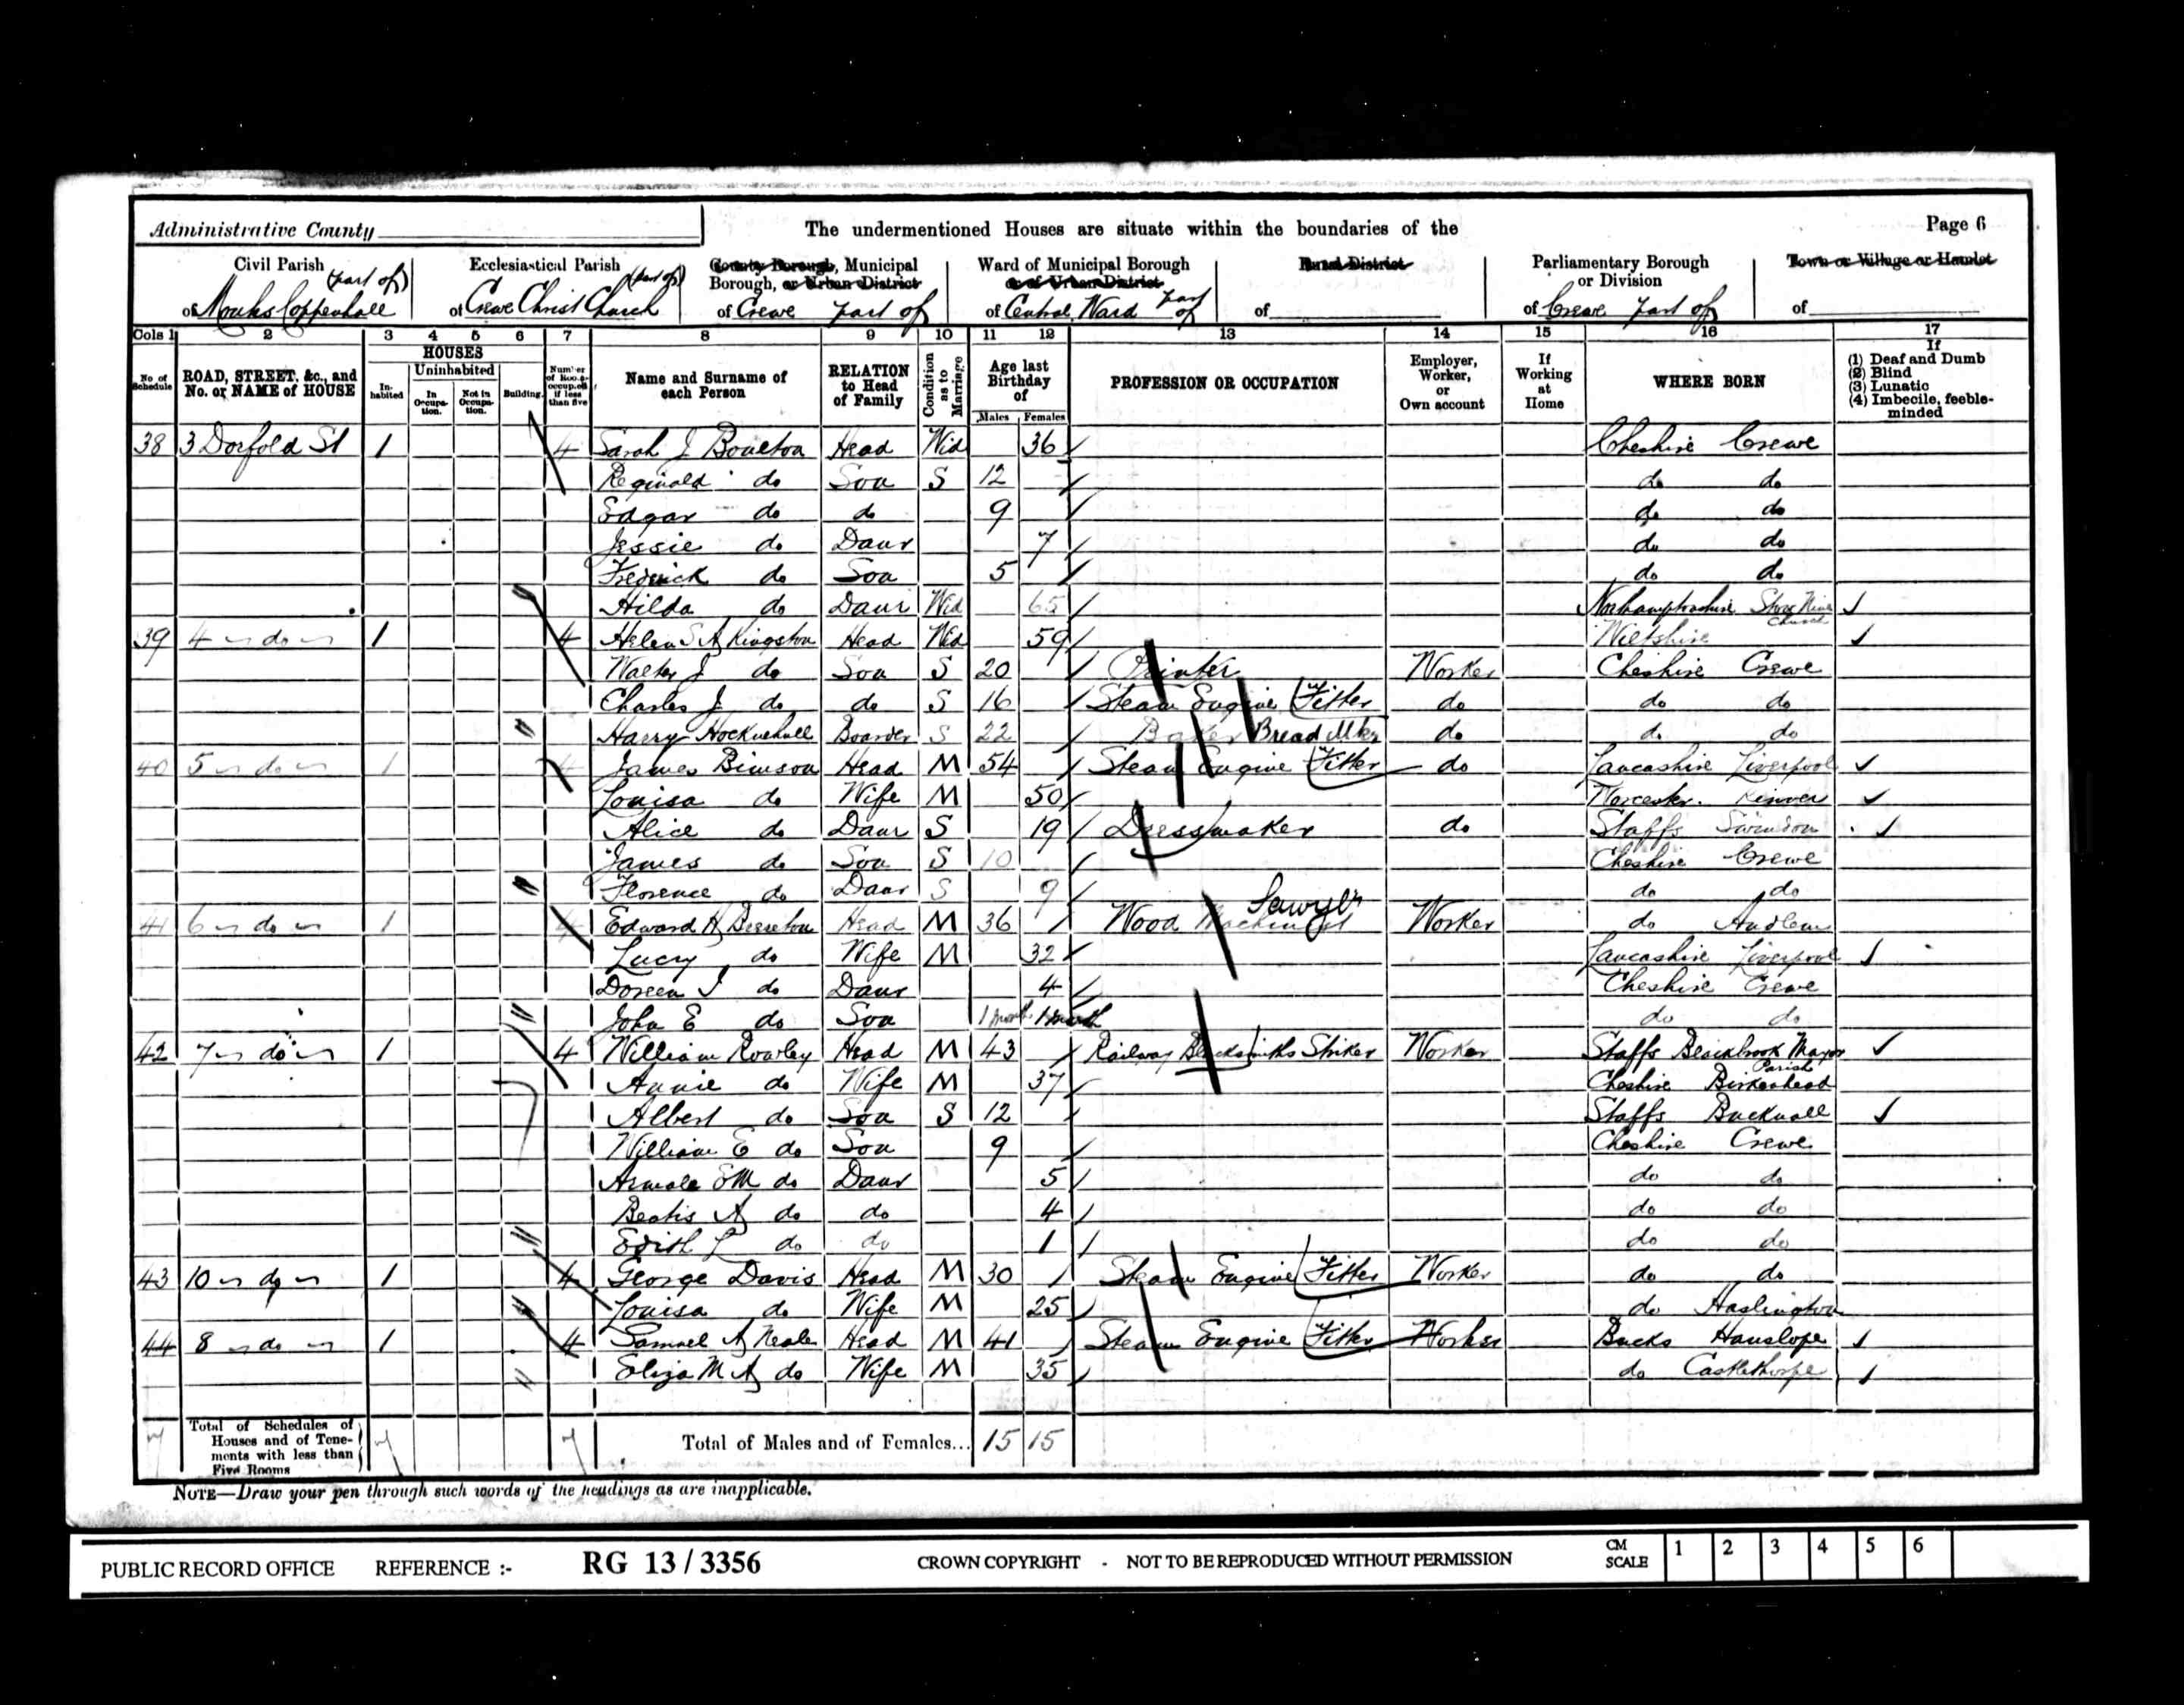 Administrative County
The undermentioned Houses are situate within the boundaries of the
Page 6
Civil Parish (part of) of Monks Coppenhall
Ecclesiastical Parish (part of) of Crewe Christ Church
County Borough, Municipal Borough, or Urban District of Crewe part of
Ward of Municipal Borough or of Urban District of Central Ward part of
Rural District of
Parliamentary Borough or Division of Crewe part of
Town or Village or Hamlet of
Cols 1 2 3 4 5 6 7 8 9 10 11 12 13 14 15 16 17
No of Schedule
ROAD, STREET, &c., and No. or NAME of HOUSE
HOUSES
Inhabited
Uninhabited
In Occupation.
Not in Occupation.
Building.
Number of Rooms occupied if less than five
Name and Surname of each Person
RELATION to Head of Family
Condition as to Marriage
Age last Birthday of
Males Females
PROFESSION OR OCCUPATION
Employer, Worker, or Own account
If Working at Home
WHERE BORN
If
(1) Deaf and Dumb
(2) Blind
(3) Lunatic
(4) Imbecile, feeble-minded
38 3 Dorfold St 1 4 Sarah J Boulton Head Wid 36 Cheshire Crewe
Reginald do Son S 12 do do
Edgar do do 9 do do
Jessie do Daur 7 do do
Fredrick do Son 5 do do
Hilda do Daur Wid 65 Church
39 4 do 1 4 Helen S A Kingston Head Wid 59 Wiltshire
Walter J do Son S 20 Printer Worker Cheshire Crewe
Charles J do do S 16 Steam Engine Fitter do do do
Harry Hocknehull Boarder S 22 Baker Bread Mkr do do do
40 5 do 1 4 James Bimson Head M 54 Steam Engine Fitter do Lancashire Liverpool
Louisa do Wife M 50 Worcester. Kinver
Alice do Daur S 19 Dressmaker do Staffs Swindon
James do Son S 10 Cheshire Crewe
Florence do Daur S 9 do do
41 6 do 1 4 Edward H Brereton Head M 36 Wood Machinist Sawyer Worker do Audlem
Lucy do Wife M 32 Lancashire Liverpool
Doreen I do Daur 4 Cheshire Crewe
John E do Son 1 month 1 month do do
42 7 do 1 4 William Rowley Head M 43 Railway Blacksmiths Striker Worker Staffs Blackbrook Mayor Parish
Annie do Wife M 37 Cheshire Birkenhead
Albert do Son S 12 Staffs Bucknall
William E do Son 9 Cheshire Crewe
E M do Daur 5 do do
Beatis A do do 4 do do
Edith L do do 1 do do
43 10 do 1 4 George Davis Head M 30 Steam Engine Fitter Worker do do
Louisa do Wife M 25 do Haslington
44 8 do 1 4 Samuel A Neale Head M 41 Steam Engine Fitter Worker Bucks Hanslope
Eliza M A do Wife M 35 do Castlethorpe
7 Total of Schedules of Houses and of Tenements with less than Five Rooms 7 7 Total of Males and of Females... 15 15
NOTE—Draw your pen through such words of the headings as are inapplicable.
PUBLIC RECORD OFFICE REFERENCE :- RG 13 / 3356 CROWN COPYRIGHT - NOT TO BE REPRODUCED WITHOUT PERMISSION CM SCALE 1 2 3 4 5 6